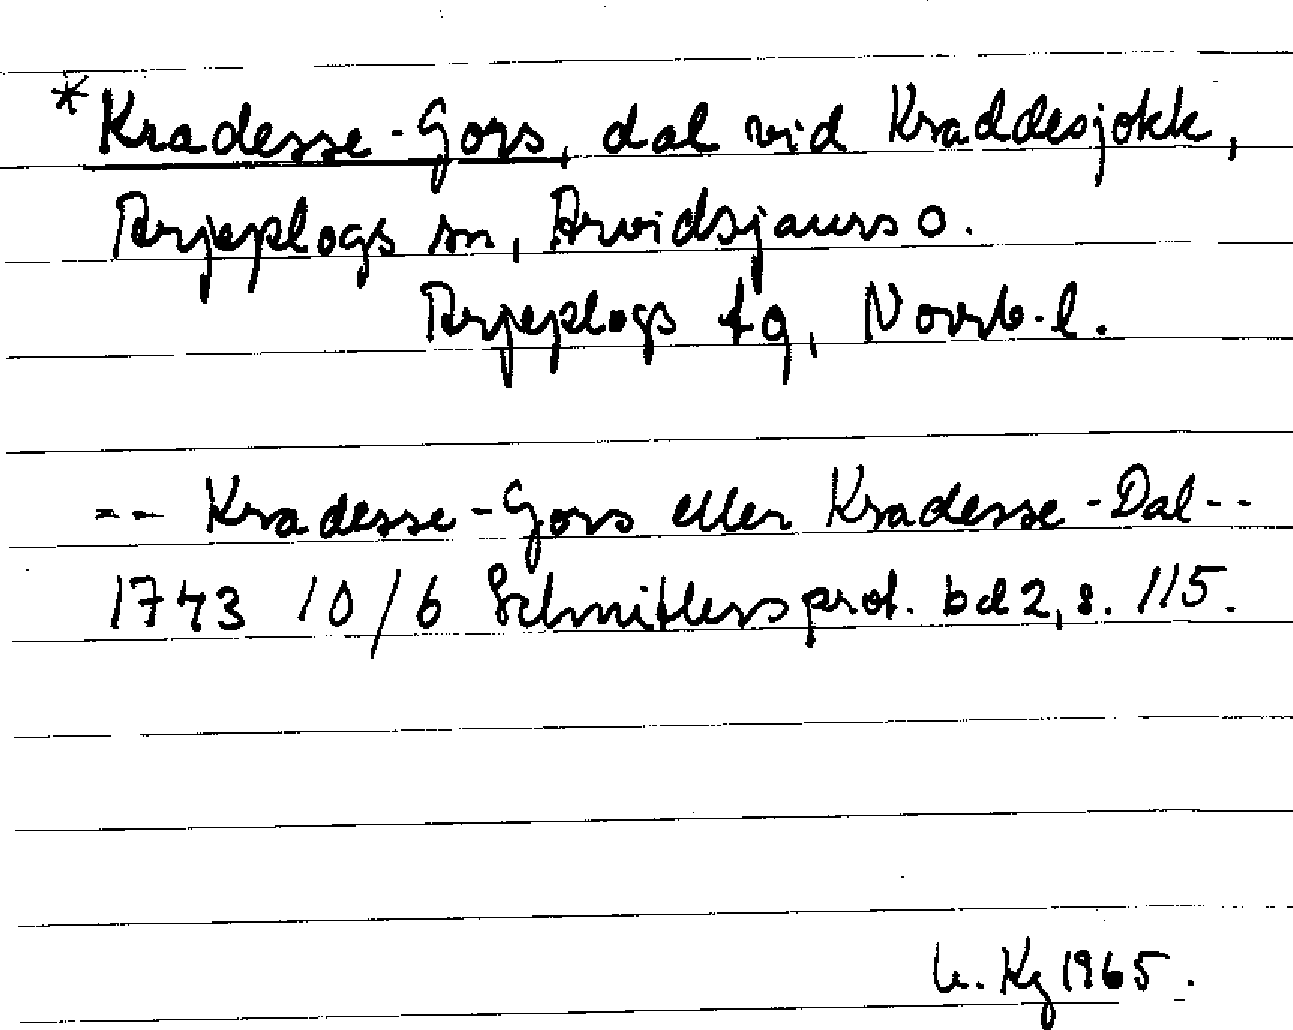 *Kradesse-Gors, dal vid Kraddesjokk,
Arjeplogs sn, Arvidsjaurs o.
Arjeplogs tg, Norrb. l.
-- Kradesse-Gors eller Kradesse-Dal --
1743 10/6 Schnitlers prot. bd 2, s. 115.
Kg 1965.